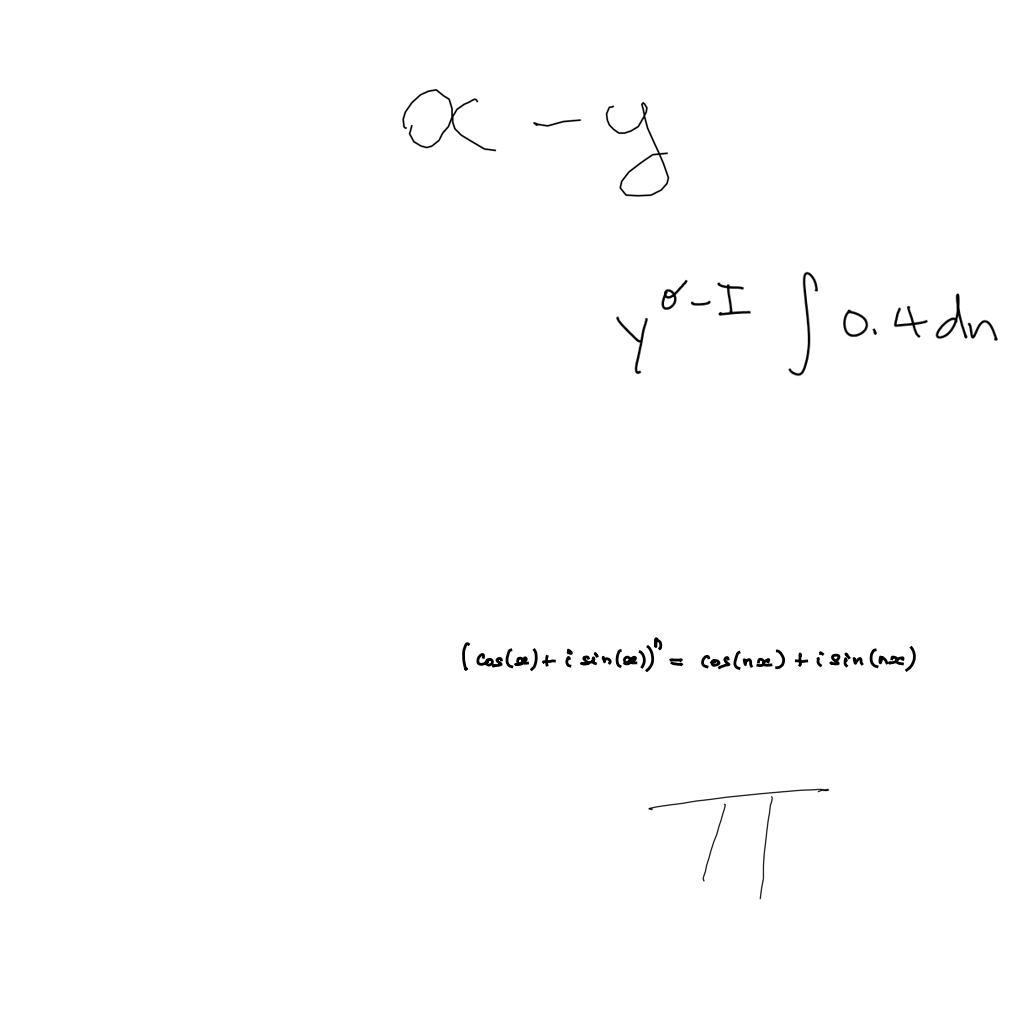 x - y
y^{σ-I} ∫ 0.4 dn
(cos(x) + i sin(x))^n = cos(nx) + i sin(nx)
π